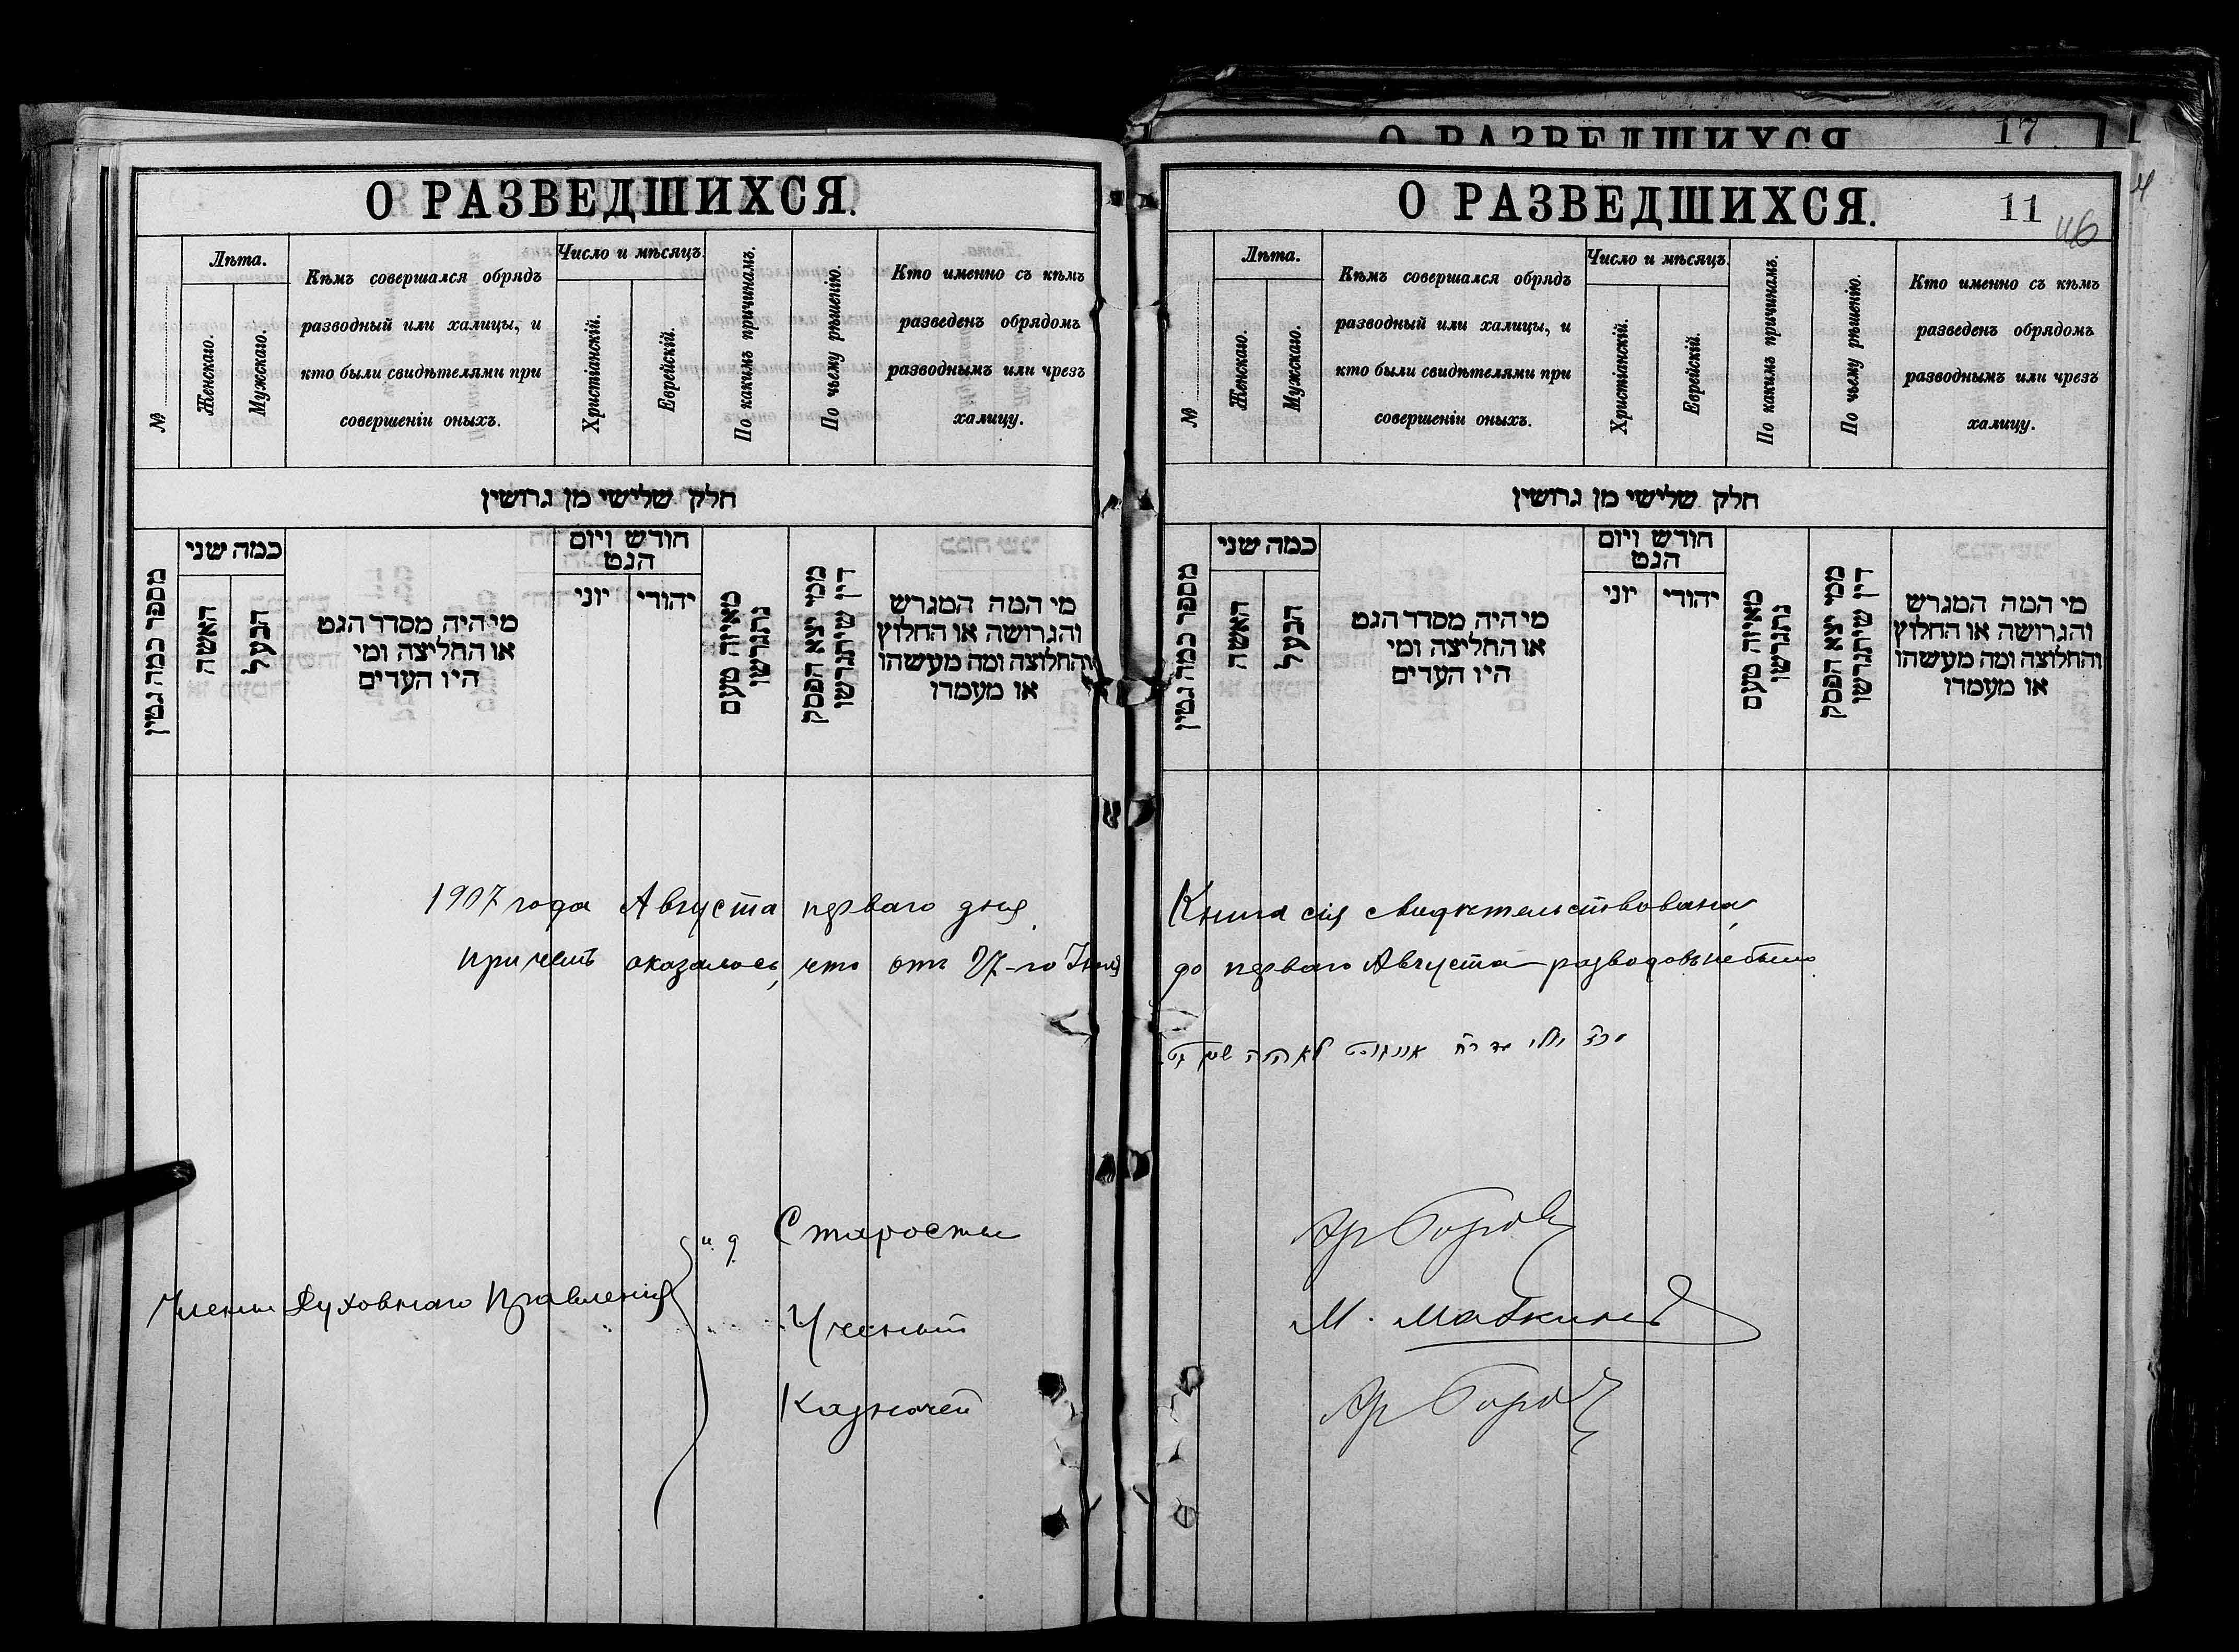 О РАЗВЕДШИХСЯ.
№
Лѣта.
Женскаго.
Мужскаго.
Кѣмъ совершался обрядъ
разводный или халицы, и
кто были свидѣтелями при
совершеніи оныхъ.
Число и мѣсяцъ.
Христіанскій.
Еврейскій.
По какимъ причинамъ.
По чьему рѣшенію.
Кто именно съ кѣмъ
разведенъ обрядомъ
разводнымъ или чрезъ
халицу.
חלק שלישי מן גרושין
מספר כמה גטין
כמה שני
האשה
הבעל
מי היה מסדר הגט
או החליצה ומי
היו העדים
חודש ויום
הגט
יוני
יהודי
מאיזה טעם
נתגרשו
ממי יצא הפסק
דין שיתגרשו
מי המה המגרש
והגרושה או החלוץ
והחלוצה ומה מעשהו
או מעמדו
1907 года Августа перваго дня
причемъ оказалось, что отъ 27-го
Члены Духовнаго Правленія
и. д. Старосты
Ученый
Казначей
О РАЗВЕДШИХСЯ. 17
О РАЗВЕДШИХСЯ. 11
46
№
Лѣта.
Женскаго.
Мужскаго.
Кѣмъ совершался обрядъ
разводный или халицы, и
кто были свидѣтелями при
совершеніи оныхъ.
Число и мѣсяцъ.
Христіанскій.
Еврейскій.
По какимъ причинамъ.
По чьему рѣшенію.
Кто именно съ кѣмъ
разведенъ обрядомъ
разводнымъ или чрезъ
халицу.
חלק שלישי מן גרושין
מספר כמה גטין
כמה שני
האשה
הבעל
מי היה מסדר הגט
או החליצה ומי
היו העדים
חודש ויום
הגט
יוני
יהודי
מאיזה טעם
נתגרשו
ממי יצא הפסק
דין שיתגרשו
מי המה המגרש
והגרושה או החלוץ
והחלוצה ומה מעשהו
או מעמדו
Книга сія свидѣтельствована,
до перваго Августа разводовъ не было.
יולי עד אויגוסט לא היה שום גט
М.